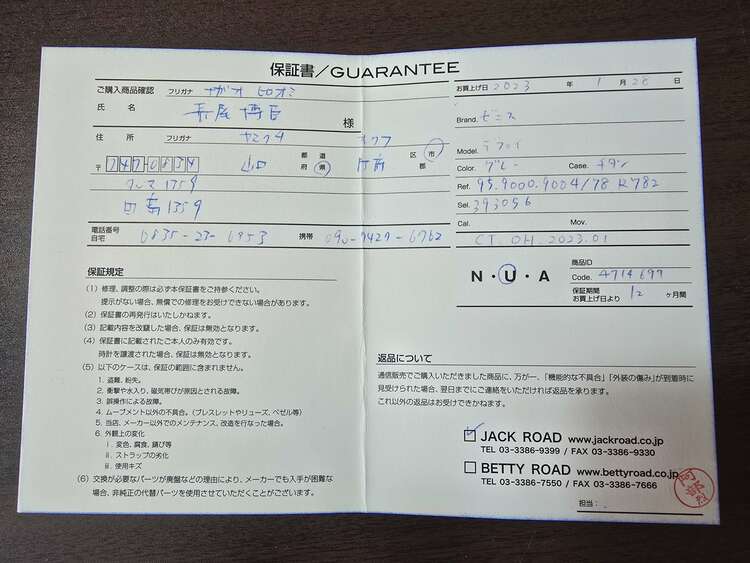 保証書/GUARANTEE
ご購入商品確認 フリガナ ナガオ ヒロオミ
氏名 長尾 博臣 様
住所 フリガナ ヤマクチ ホウフ
〒 747-0834 山口 都道府県 防府 区市郡
クルマ 1359
田島1359
電話番号
自宅 0835-23-6953 携帯 090-9427-6762
保証規定
(1) 修理、調整の際は必ず本保証書をご持参ください。
提示がない場合、無償での修理をお受けできない場合があります。
(2) 保証書の再発行はいたしかねます。
(3) 記載内容を改竄した場合、保証は無効となります。
(4) 保証書に記載されたご本人のみ有効です。
時計を譲渡された場合、保証は無効となります。
(5) 以下のケースは、保証の範囲に含まれません。
1. 盗難、紛失。
2. 衝撃や水入り、磁気帯びが原因とされる故障。
3. 誤操作による故障。
4. ムーブメント以外の不具合。(ブレスレットやリューズ、ベゼル等)
5. 当店、メーカー以外でのメンテナンス、改造を行なった場合。
6. 外観上の変化
i. 変色、腐食、錆び等
ii. ストラップの劣化
iii. 使用キズ
(6) 交換が必要なパーツが廃盤などの理由により、メーカーでも入手が困難な
場合、非純正の代替パーツを使用させていただくことがございます。
お買上げ日 2023 年 1 月 28 日
Brand. ゼニス
Model. デファイ
Color. グレー Case. チタン
Ref. 95.9000.9004/78 R782
Sel. 393056
Cal. Mov.
CT.OH.2023.01
N・U・A
商品ID
Code. 4714697
保証期間
お買上げ日より 12 ヶ月間
返品について
通信販売でご購入いただきました商品に、万が一、「機能的な不具合」「外装の傷み」が到着時に
見受けられた場合、翌日までにご連絡をいただければ返品を承ります。
これ以外の返品はお受けできかねます。
JACK ROAD www.jackroad.co.jp
TEL 03-3386-9399 / FAX 03-3386-9330
BETTY ROAD www.bettyroad.co.jp
TEL 03-3386-7550 / FAX 03-3386-7666
担当:
阿部